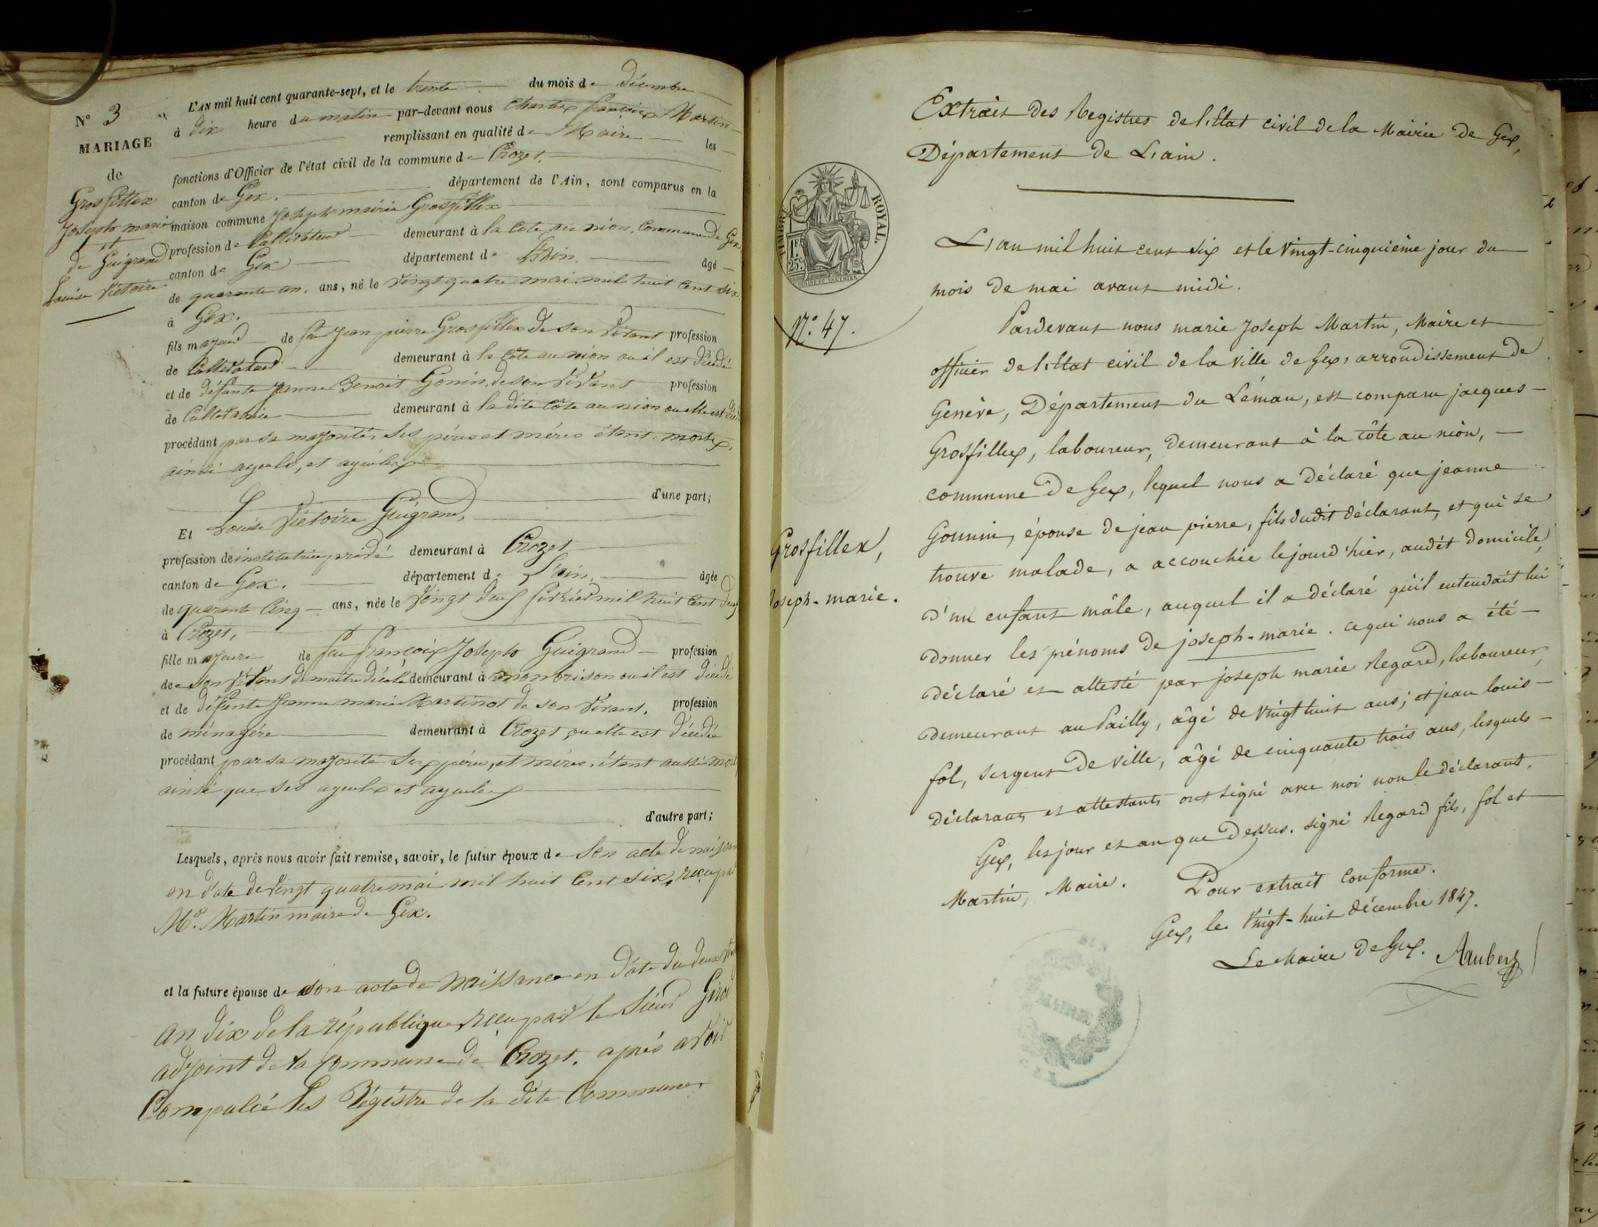 N° 3
MARIAGE
de
Grosfillex
Joseph marie
et
de Guigrand
Louise Victoire
L'AN mil huit cent quarante-sept, et le trente du mois de décembre
à dix heure du matin par-devant nous Charles françois Martin
remplissant en qualité de Maire les
fonctions d'Officier de l'état civil de la commune de Crozet.
canton de Gex. département de l'Ain, sont comparus en la
maison commune Joseph marie Grosfillex
profession de Cultivateur demeurant à la Côte au nion, Commune de Gex
canton de Gex département de l'Ain. âgé
de quarante un. ans, né le Vingt quatre mai mil huit Cent six
à Gex.
fils majeur de feu Jean pierre Grosfillex de son Vivant profession
de Cultivateur demeurant à la Côte au nion ou il est décédé
et de défunte Jeanne Benoit Gonin, de son Vivant profession
de Cultivatrice demeurant à la dite Côte au nion ou elle est
procédant par sa majorité, ses pères et mères étant morts,
ainsi
d'une part;
Et Louise Victoire Guigrand,
profession de institutrice demeurant à Crozet
canton de Gex. département de l'Ain. âgée
de quarante Cinq ans, née le Vingt deux février mil huit Cent deux
à Crozet,
fille majeure de feu françois Joseph Guigrand profession
de son Vivant de maitre d'école demeurant à monbrison ou il est décédé
et de défunte Jeanne marie Martinot de son Vivant. profession
de ménagère demeurant à Crozet ou elle est décédée
procédant par sa majorité Ses pères et mères, étant aussi
ainsi que ses
d'autre part;
Lesquels, après nous avoir fait remise, savoir, le futur époux de Son acte de
en date de Vingt quatre mai mil huit Cent six, reçu par
Mr. Martin maire de Gex.
et la future épouse de son acte de Naissance en date du
an dix de la république reçu par le Sieur
adjoint de la Commune de Crozet. après avoir
Compulcé les Régistre de la dite Commune
Extrait des Registres de l'Etat civil de la Mairie de Gex,
Département de L'ain.
TIMBRE ROYAL
1F.
25c
N°. 47.
Grosfillex,
Joseph-marie.
L'an mil huit cent six et le vingt-cinquième jour du
mois de mai avant midi.
Pardevant nous marie Joseph Martin, Maire et
officier de l'Etat civil de la ville de Gex, arrondissement de
Genève, Département du Léman, est comparu jacques
Grosfillex, laboureur, demeurant à la côte au nion,
commune de Gex, lequel nous a déclaré que jeanne
Gonnin, épouse de jean pierre, fils dudit déclarant, et qui se
trouve malade, a accouchée le jourd'hier, audit domicile,
d'un enfant mâle, auquel il a déclaré qu'il entendait lui
donner les prénoms de joseph-marie. ce qui nous a été
déclaré et attesté par joseph marie Regard, laboureur,
demeurant au Pailly, âgé de vingt huit ans; et jean louis
fol, sergent de ville, âgé de cinquante trois ans, lesquels
déclarants et attestants ont signé avec moi non le déclarant.
Gex, les jour et an que dessus. signé Regard fils, fol et
Martin, Maire. Pour extrait conforme.
Gex, le vingt-huit décembre 1847.
Le Maire de Gex.
MAIRIE